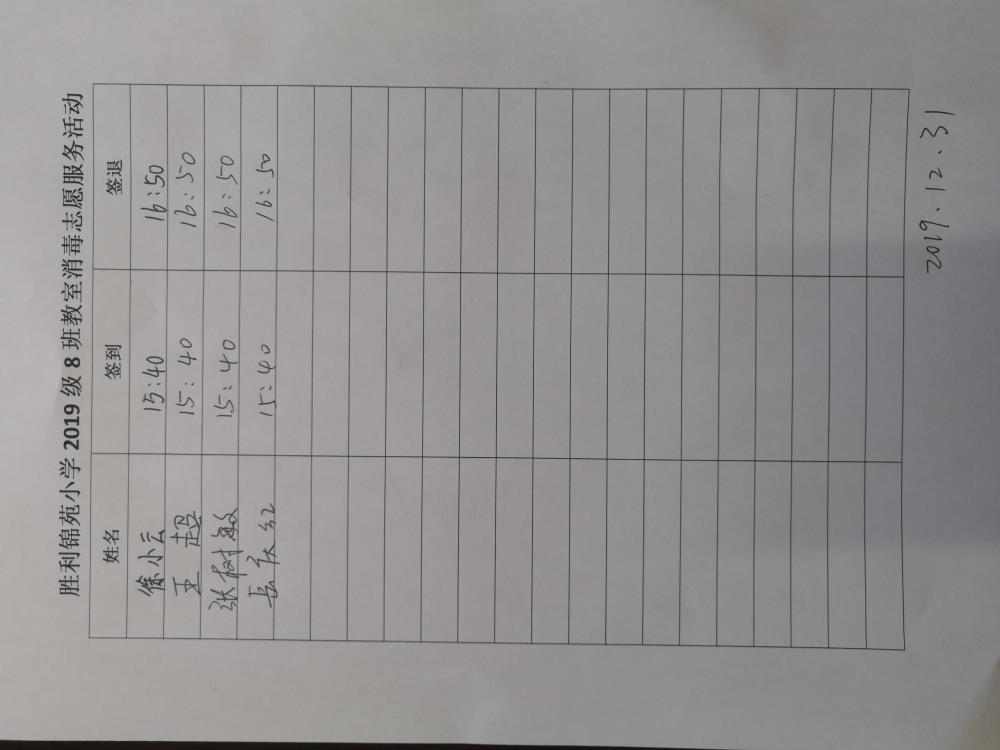 胜利锦苑小学 2019 级 8 班教室消毒志愿服务活动
姓名 签到 签退
徐小云 15:40 16:50
王超 15:40 16:50
张树敏 15:40 16:50
岳庆红 15:40 16:50
2019.12.31